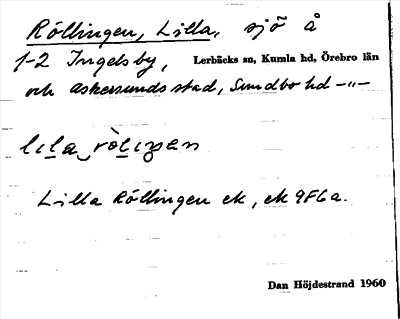 Röllingen, Lilla, sjö å
1-2 Ingelsby, Lerbäcks sn, Kumla hd, Örebro län
och Askersunds stad, Sundbo hd -"-
lıla ròlıŋen
Lilla Röllingen ek, ek 9F6a.
Dan Höjdestrand 1960